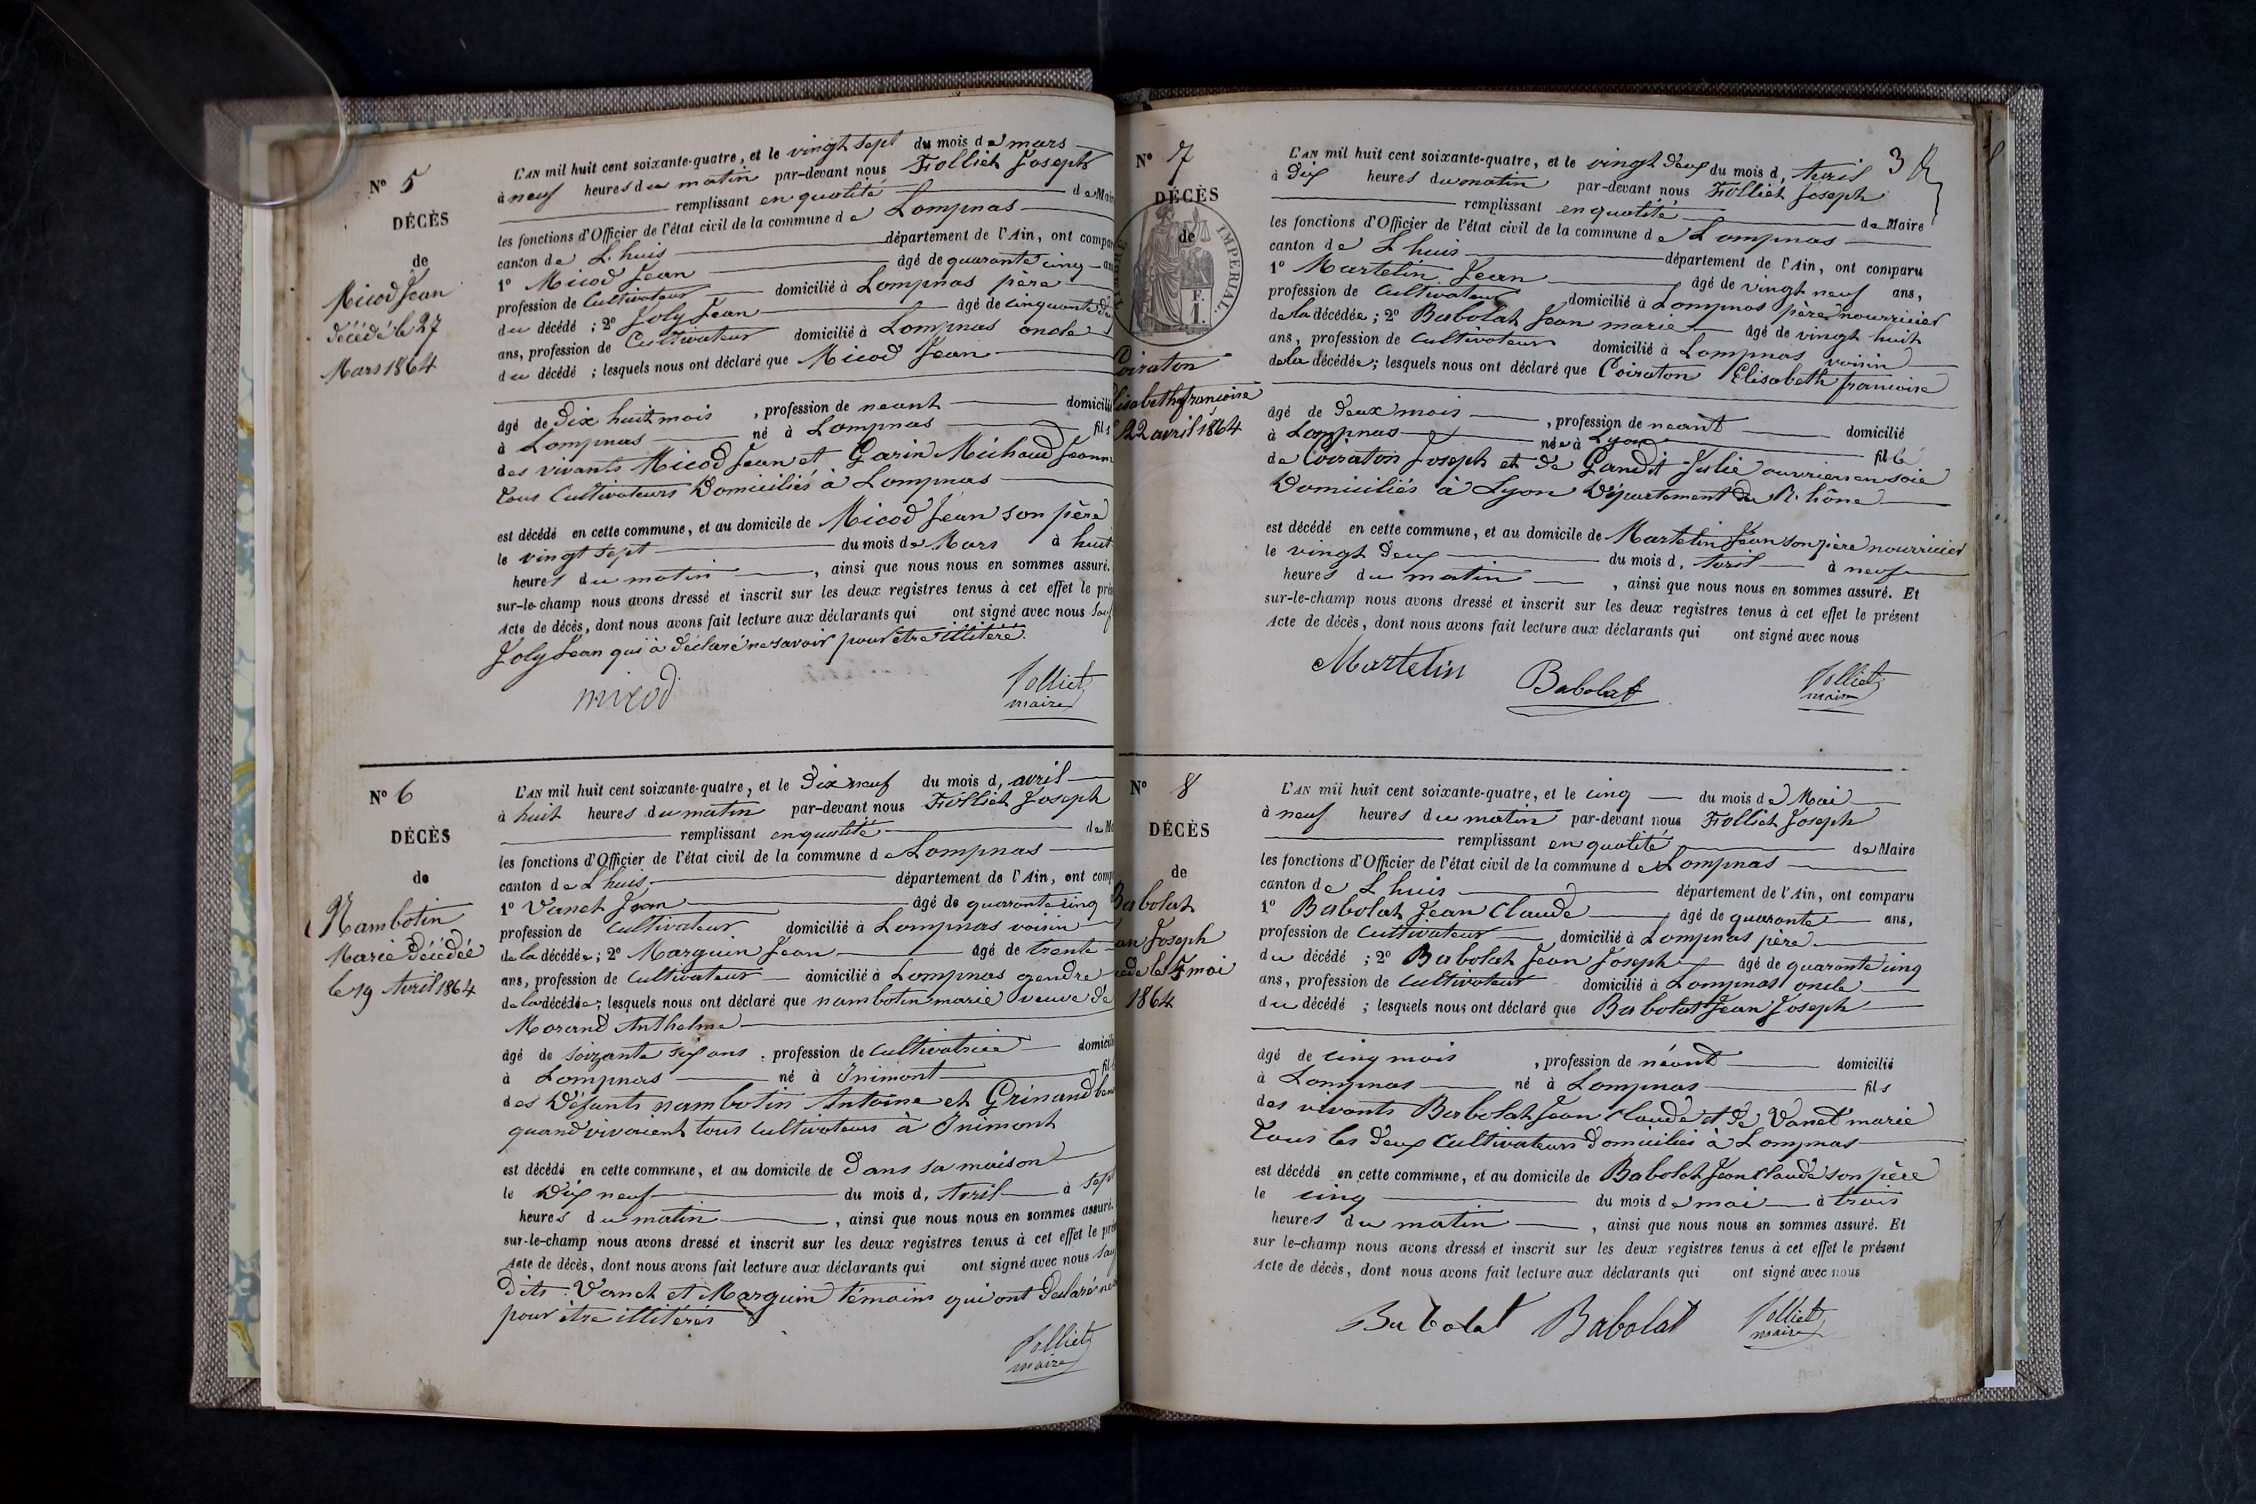 N° 5
DÉCÈS
de
Micod Jean
décédé le 27
Mars 1864
L'AN mil huit cent soixante-quatre, et le vingt sept du mois de mars
à neuf heures du matin par-devant nous Folliet Joseph
remplissant en qualité de Mair
les fonctions d'Officier de l'état civil de la commune de Lompnas
canton de L'huis département de l'Ain, ont compar
1° Micod Jean âgé de quarante cinq an
profession de Cultivateur domicilié à Lompnas père
du décédé ; 2° Joly Jean âgé de cinquante
ans, profession de Cultivateur domicilié à Lompnas oncle
du décédé ; lesquels nous ont déclaré que Micod Jean
âgé de Dix huit mois , profession de neant domicilié
à Lompnas né à Lompnas fils
des vivants Micod Jean et Garin Michaud Jeann
tous Cultivateurs Domiciliés à Lompnas
est décédé en cette commune, et au domicile de Micod Jean son père
le vingt sept du mois de Mars à huit
heures du matin , ainsi que nous nous en sommes assuré.
sur-le-champ nous avons dressé et inscrit sur les deux registres tenus à cet effet le pré
Acte de décès, dont nous avons fait lecture aux déclarants qui ont signé avec nous Sauf
Joly Jean qui à déclaré ne savoir pour être illitéré
micod
Folliet
maire
N° 6
DÉCÈS
de
Nambotin
Marie Décédée
le 19 Avril 1864
L'AN mil huit cent soixante-quatre, et le Dix neuf du mois d, avril
à huit heures du matin par-devant nous Folliet Joseph
remplissant en qualité de Ma
les fonctions d'Officier de l'état civil de la commune de Lompnas
canton de L'huis département de l'Ain, ont comp
1° Vanet Jean âgé de quarante cinq
profession de Cultivateur domicilié à Lompnas voisin
de la décédée ; 2° Marguin Jean âgé de trente
ans, profession de Cultivateur domicilié à Lompnas gendre
de la décédée ; lesquels nous ont déclaré que nambotin marie veuve de
Morand Anthelme
âgé de soixante six ans , profession de Cultivatrice domicili
à Lompnas né à Inimont fil
des Défunts nambotin Antoine et Grinand
quand vivaient tous Cultivateurs à Inimont
est décédé en cette commune, et au domicile de Dans sa maison
le Dix neuf du mois d, Avril à Sept
heures du matin , ainsi que nous nous en sommes assuré.
sur-le-champ nous avons dressé et inscrit sur les deux registres tenus à cet effet le pré
Acte de décès, dont nous avons fait lecture aux déclarants qui ont signé avec nous Sauf
Dits Vanet et Marguin témoins qui ont Declaré ne
pour être illitérés
Folliet
maire
N° 7
DÉCÈS
de
IMPERIAL.
F.
1.
Coiraton
lisabeth francoise
22 avril 1864
3
L'AN mil huit cent soixante-quatre, et le vingt deux du mois d, Avril
à Dix heures du matin par-devant nous Folliet Joseph
remplissant en qualité de Maire
les fonctions d'Officier de l'état civil de la commune de Lompnas
canton de L'huis département de l'Ain, ont comparu
1° Martelin Jean âgé de vingt neuf ans,
profession de Cultivateur domicilié à Lompnas père nourricier
de la décédée ; 2° Babolat Jean marie âgé de vingt huit
ans, profession de Cultivateur domicilié à Lompnas voisin
de la décédée ; lesquels nous ont déclaré que Coiraton Elisabeth francoise
âgé de Deux mois , profession de neant domicilié
à Lompnas née à Lyon fille
de Coiraton Joseph et de Gandit Julie ouvriers en soie
Domiciliés à Lyon Département du Rhône
est décédé en cette commune, et au domicile de Martelin Jean son père nourricier
le vingt Deux du mois d, Avril à neuf
heures du matin , ainsi que nous nous en sommes assuré. Et
sur-le-champ nous avons dressé et inscrit sur les deux registres tenus à cet effet le présent
Acte de décès, dont nous avons fait lecture aux déclarants qui ont signé avec nous
Martelin
Babolat
Folliet
maire
N° 8
DÉCÈS
de
Babolat
Jean Joseph
cédé le 5 mai
1864
L'AN mil huit cent soixante-quatre, et le cinq du mois de Mai
à neuf heures du matin par-devant nous Folliet Joseph
remplissant en qualité de Maire
les fonctions d'Officier de l'état civil de la commune de Lompnas
canton de L'huis département de l'Ain, ont comparu
1° Babolat Jean Claude âgé de quarante ans,
profession de Cultivateur domicilié à Lompnas père
du décédé ; 2° Babolat Jean Joseph âgé de quarante cinq
ans, profession de Cultivateur domicilié à Lompnas oncle
du décédé ; lesquels nous ont déclaré que Babolat Jean Joseph
âgé de cinq mois , profession de néant domicilié
à Lompnas né à Lompnas fils
des vivants Babolat Jean Claude et de Vanet marie
tous les deux Cultivateurs Domiciliés à Lompnas
est décédé en cette commune, et au domicile de Babolat Jean Claude son père
le cinq du mois de mai à trois
heures du matin , ainsi que nous nous en sommes assuré. Et
sur le-champ nous avons dressé et inscrit sur les deux registres tenus à cet effet le présent
Acte de décès, dont nous avons fait lecture aux déclarants qui ont signé avec nous
Babolat
Babolat
Folliet
maire